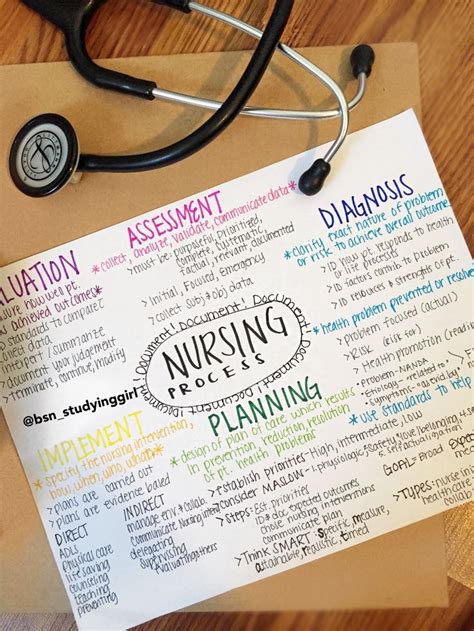 ASSESSMENT
*collect, analyze, validate, communicate data*
>must be: purposeful, prioritized,
complete, systematic,
factual, relevant, documented
>Initial, Focused, Emergency
>collect subj + obj data
DIAGNOSIS
*clarify exact nature of problem
or risk to achieve overall outcome
>ID how pt. responds to health
or life processes
>ID factors contrib to problem
>ID resources + strengths of pt.
*health problem prevented or resolved
>Problem focused (actual)
>Risk (risk for)
>Health promotion (read
Problem-NANDA
Etiology-related to
Symptoms-
*use standards to help
UATION
ure how well pt.
w achieved outcomes*
ID standards to compare
ollect data
interpret / summarize
document your judgement
>terminate, continue, modify
Document! Document! Document! Document!
NURSING
PROCESS
@bsn_studyinggirl
IMPLEMENT
*specify the nursing intervention,
how, when, who, what*
>plans are carried out
>plans are evidence based
DIRECT
ADLs
physical care
life saving
counseling
teaching
preventing
INDIRECT
manage env + collab.
communicate nursing interv
delegating
supervising
evaluating others
PLANNING
*design of plan of care which results
in prevention, reduction, resolution
of pt. health problems*
>establish priorities-High, intermediate, low
consider MASLOW-1.physiologic, 2.safety, 3.love/belonging, 4.
5.selfactualization
>steps: Est. priorities
ID + doc expected outcomes
chose nursing interventions
communicate plan
>Think SMART-specific, measure,
attainable, realistic, timed
GOAL: Broad
>TYPES: nurse
healthcare
collabo